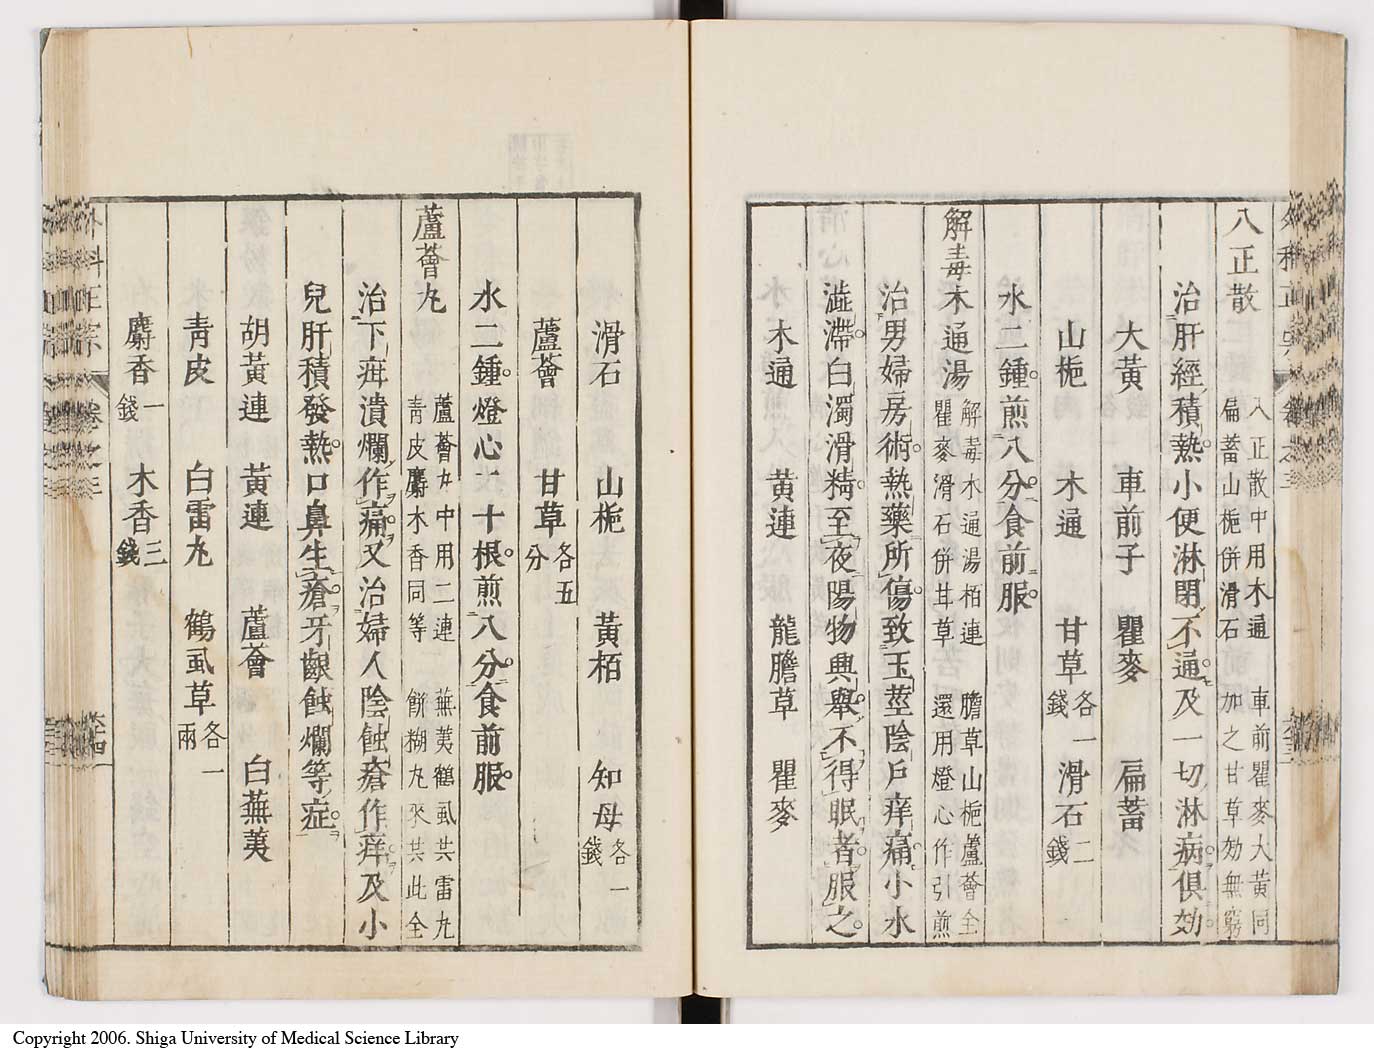 八正散 八正散中用木通 車前瞿麥大黃同
扁蓄山梔併滑石 加之甘草効無窮
治肝經積熱小便淋閉不通及一切淋病俱効
大黃 車前子 瞿麥 扁蓄
山梔 木通 甘草各一錢 滑石二錢
水二鍾煎八分食前服
解毒木通湯 解毒木通湯栢連 膽草山梔蘆薈全
瞿麥滑石併甘草 還用燈心作引煎
治男婦房術熱藥所傷致玉莖陰戶痒痛小水
澁滯白濁滑精至夜陽物興舉不得眠者服之
木通 黃連 龍膽草 瞿麥
滑石 山梔 黃栢 知母各一錢
蘆薈 甘草各五分
水二鍾燈心二十根煎八分食前服
蘆薈丸 蘆薈丸中用二連 蕪荑鶴虱共雷丸
青皮麝木香同等 餅糊丸來共此全
治下疳潰爛作痛又治婦人陰蝕瘡作痒及小
兒肝積發熱口鼻生瘡牙齦蝕爛等症
胡黃連 黃連 蘆薈 白蕪荑
靑皮 白雷丸 鶴虱草各一兩
麝香一錢 木香三錢
外科正宗 卷之三
Copyright 2006. Shiga University of Medical Science Library